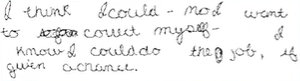 I think I could - no I want
to correct myself - I
know I could do the job, if
given a chance.